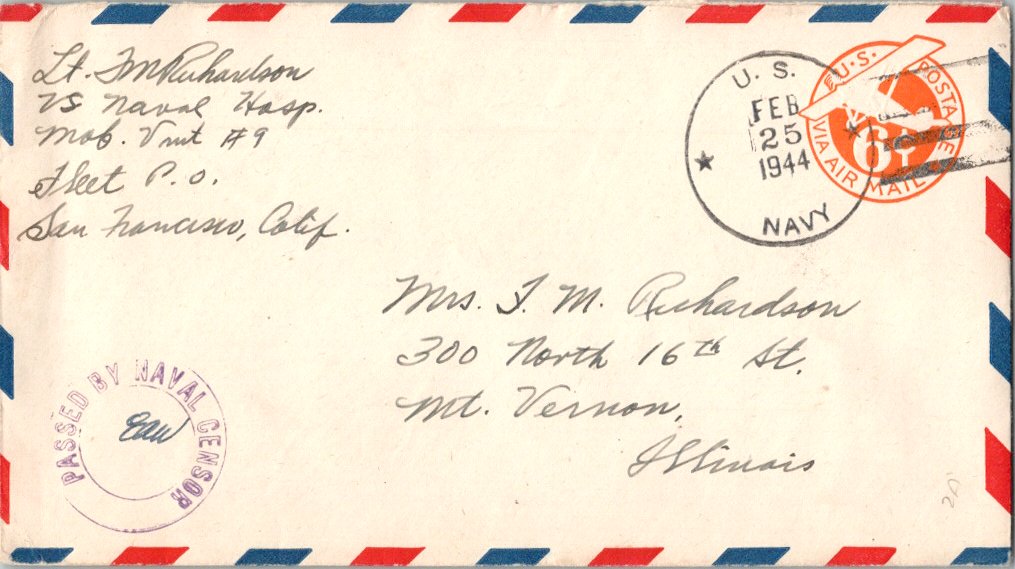 Lt. F M Richardson
US Naval Hosp.
Mob. Unit #9
Fleet P. O.
San Francisco, Calif.
U. S.
FEB
25
1944
NAVY
U.S. POSTAGE
6¢
VIA AIR MAIL
Mrs. F. M. Richardson
300 North 16th St.
Mt. Vernon,
Illinois
PASSED BY NAVAL CENSOR